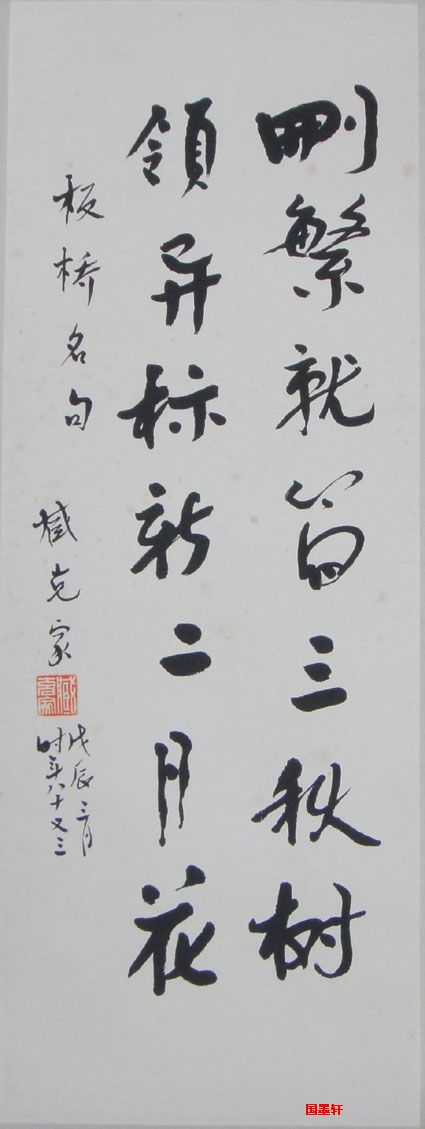 删繁就简三秋树
领异标新二月花
板桥名句
臧克家
臧克家
戊辰三月
时年八十又三
国墨轩